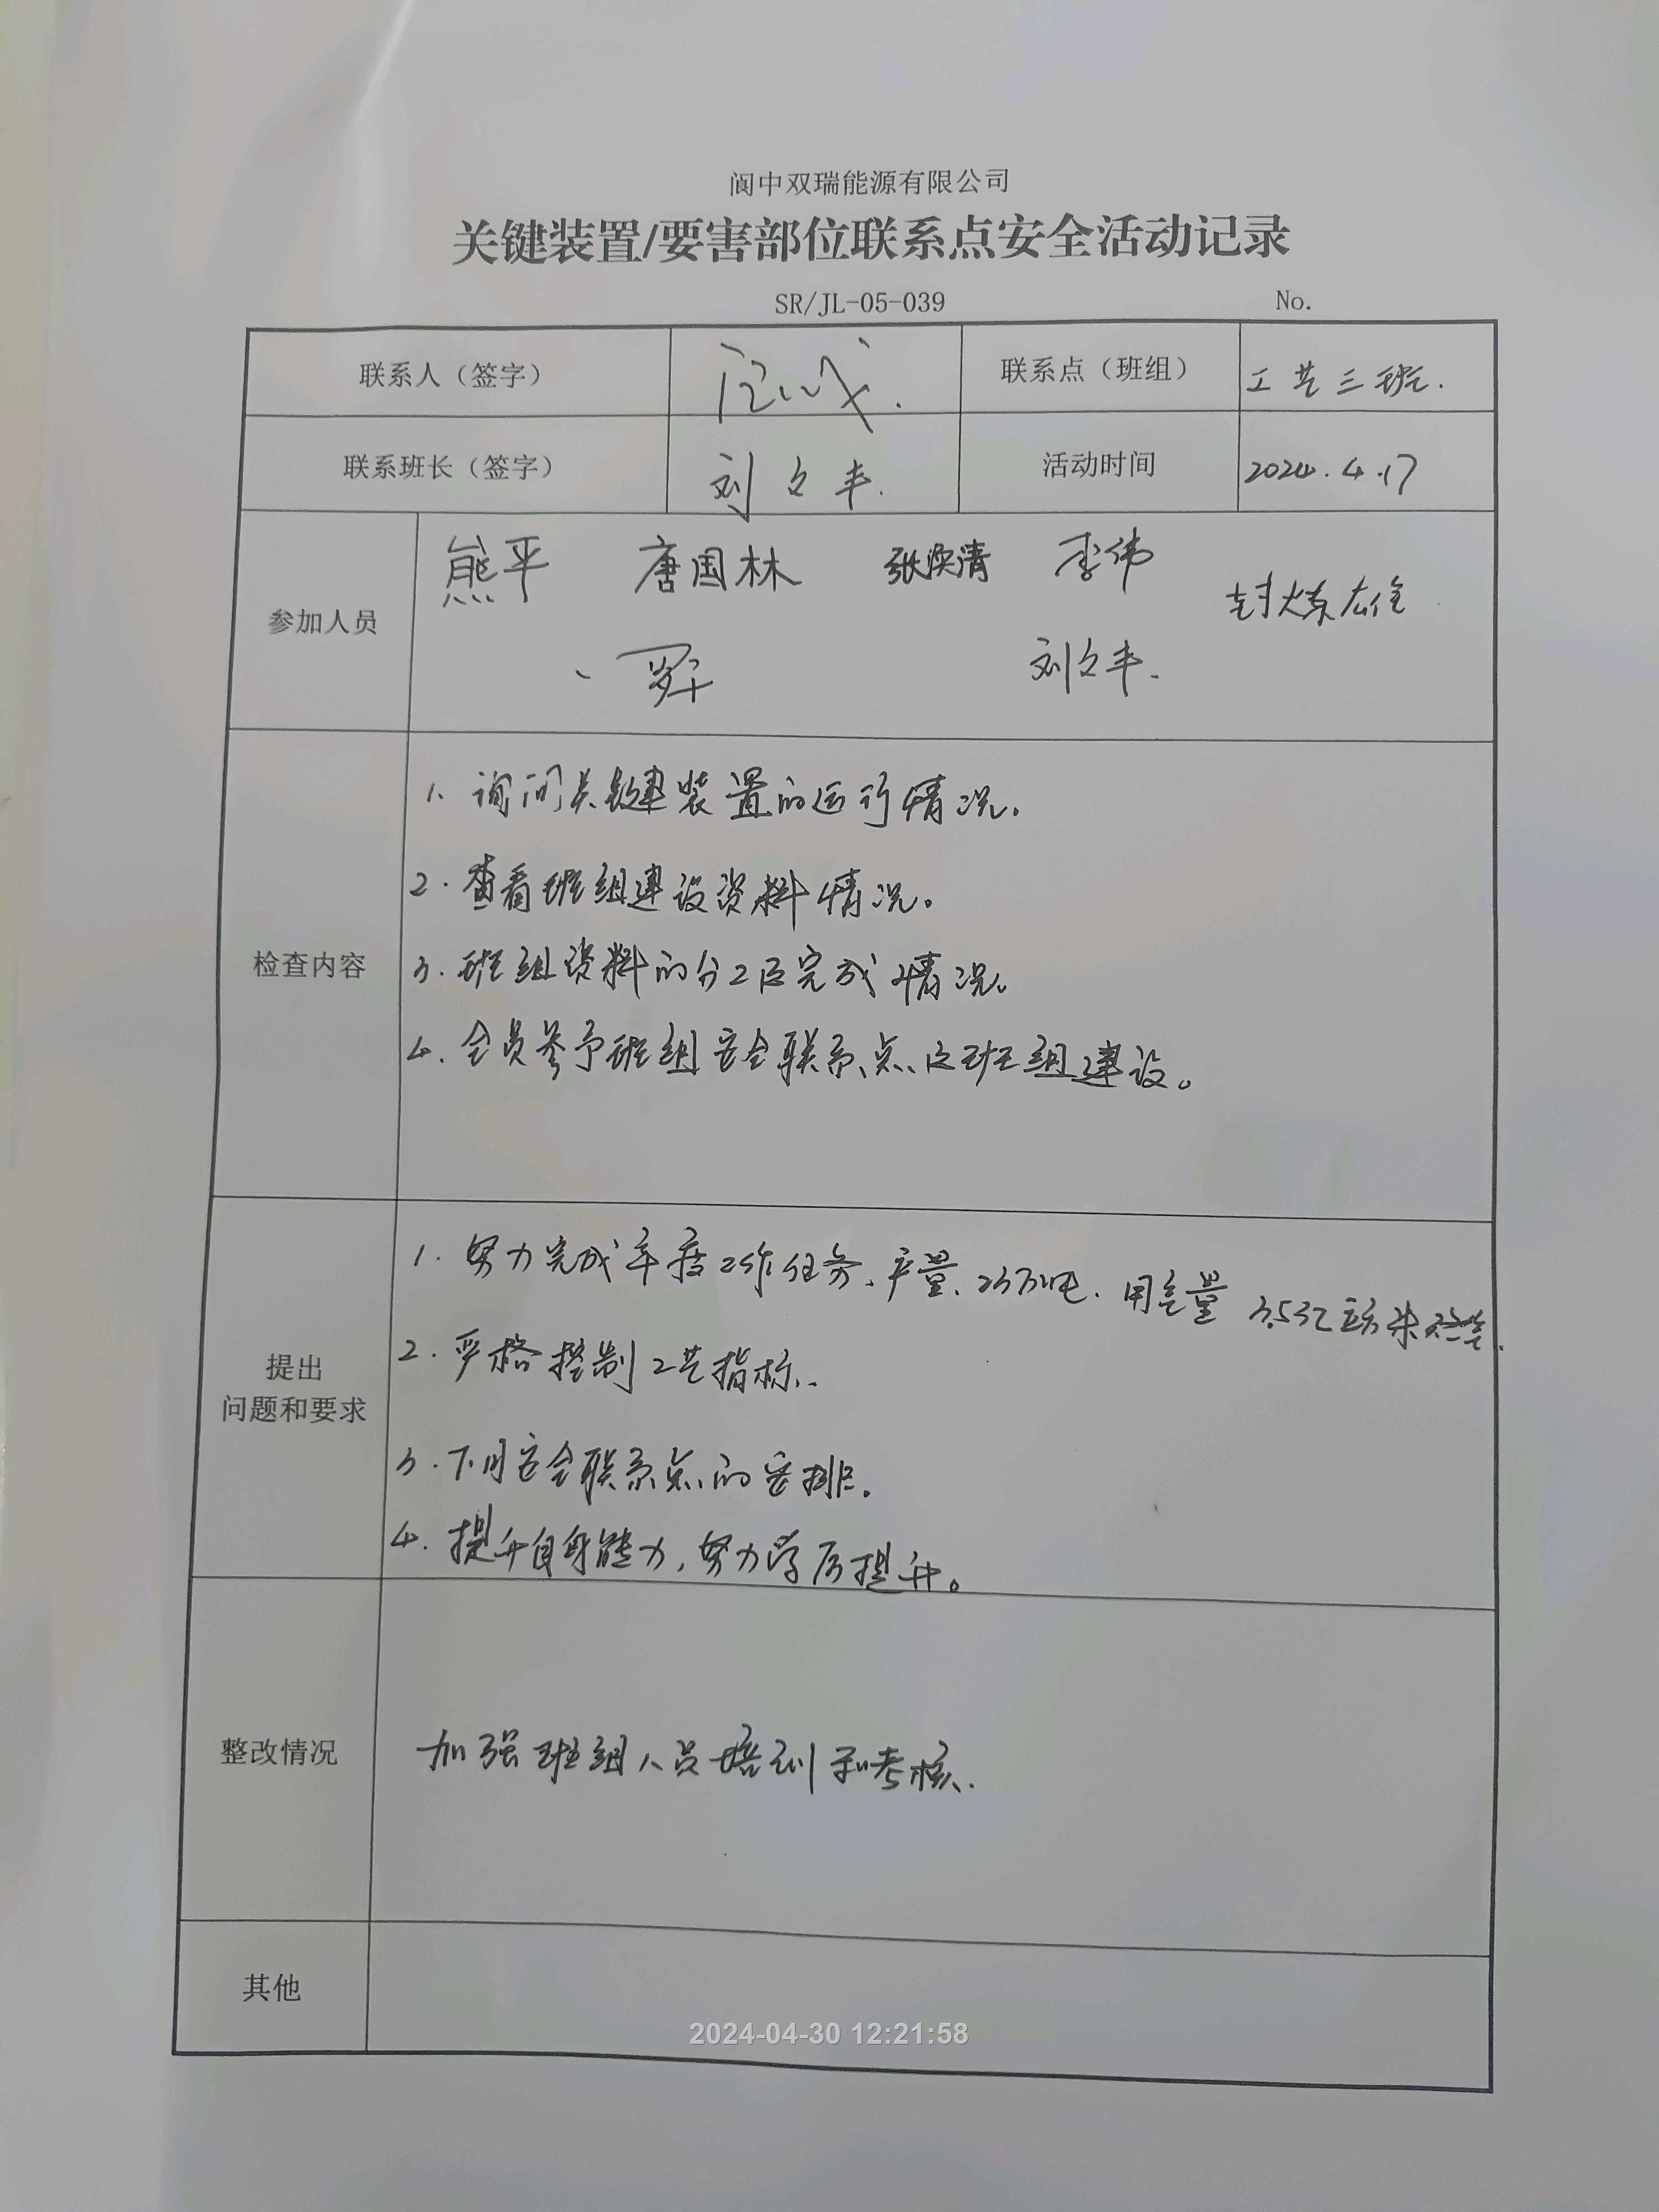 阆中双瑞能源有限公司
关键装置/要害部位联系点安全活动记录
SR/JL-05-039 No.
联系人（签字） 联系点（班组） 工艺三班.
联系班长（签字） 刘 丰. 活动时间 2024.4.17
熊平 唐国林 张 清 李伟
封炼雄
参加人员
罗 刘 丰.
1、询问关键装置的运行情况。
2.查看班组建设资料情况。
检查内容 3.班组资料的分工及完成情况。
4.全员参予班组安全联系点及班组建设。
1.努力完成年度工作任务、产量、23万吨.用气量 3.5亿立方米
2.严格控制工艺指标.
提出
问题和要求
3.下月安全联系点的安排.
4.提升自身能力,努力学历提升。
整改情况 加强班组人员培训和考核.
其他
2024-04-30 12:21:58